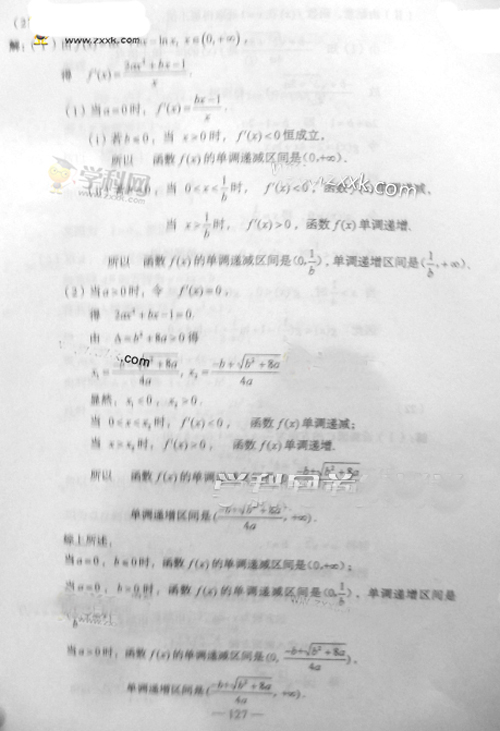 (2)
www.zxxk.com
解：(Ⅰ)由 f(x)= -ln x, x∈(0,+∞),
得 f′(x)=(2ax²+bx-1)/x.
(1)当a=0时, f′(x)=(bx-1)/x.
(ⅰ)若b≤0, 当 x>0时, f′(x)<0恒成立,
所以 函数 f(x)的单调递减区间是(0,+∞).
学科网
当 0<x<1/b时, f′(x)<0, 函数
zxxk.com
当 x>1/b时, f′(x)>0, 函数 f(x)单调递增.
所以 函数 f(x)的单调递减区间是(0,1/b), 单调递增区间是(1/b,+∞).
(2)当a>0时, 令 f′(x)=0,
得 2ax²+bx-1=0.
由 Δ=b²+8a>0得
.com
x₁=(-b-√(b²+8a))/4a, x₂=(-b+√(b²+8a))/4a
显然, x₁<0, x₂>0.
当 0<x<x₂时, f′(x)<0, 函数 f(x)单调递减;
当 x>x₂时, f′(x)>0, 函数 f(x)单调递增.
所以 函数 f(x)的单调 (-b+√(b²+8a))/4a
单调递增区间是((-b+√(b²+8a))/4a, +∞).
综上所述,
当a=0, b≤0时, 函数 f(x)的单调递减区间是(0,+∞);
当a=0, b>0时, 函数 f(x)的单调递减区间是(0,1/b), 单调递增区间是
当a>0时, 函数 f(x)的单调递减区间是(0, (-b+√(b²+8a))/4a),
单调递增区间是((-b+√(b²+8a))/4a, +∞).
— 127 —